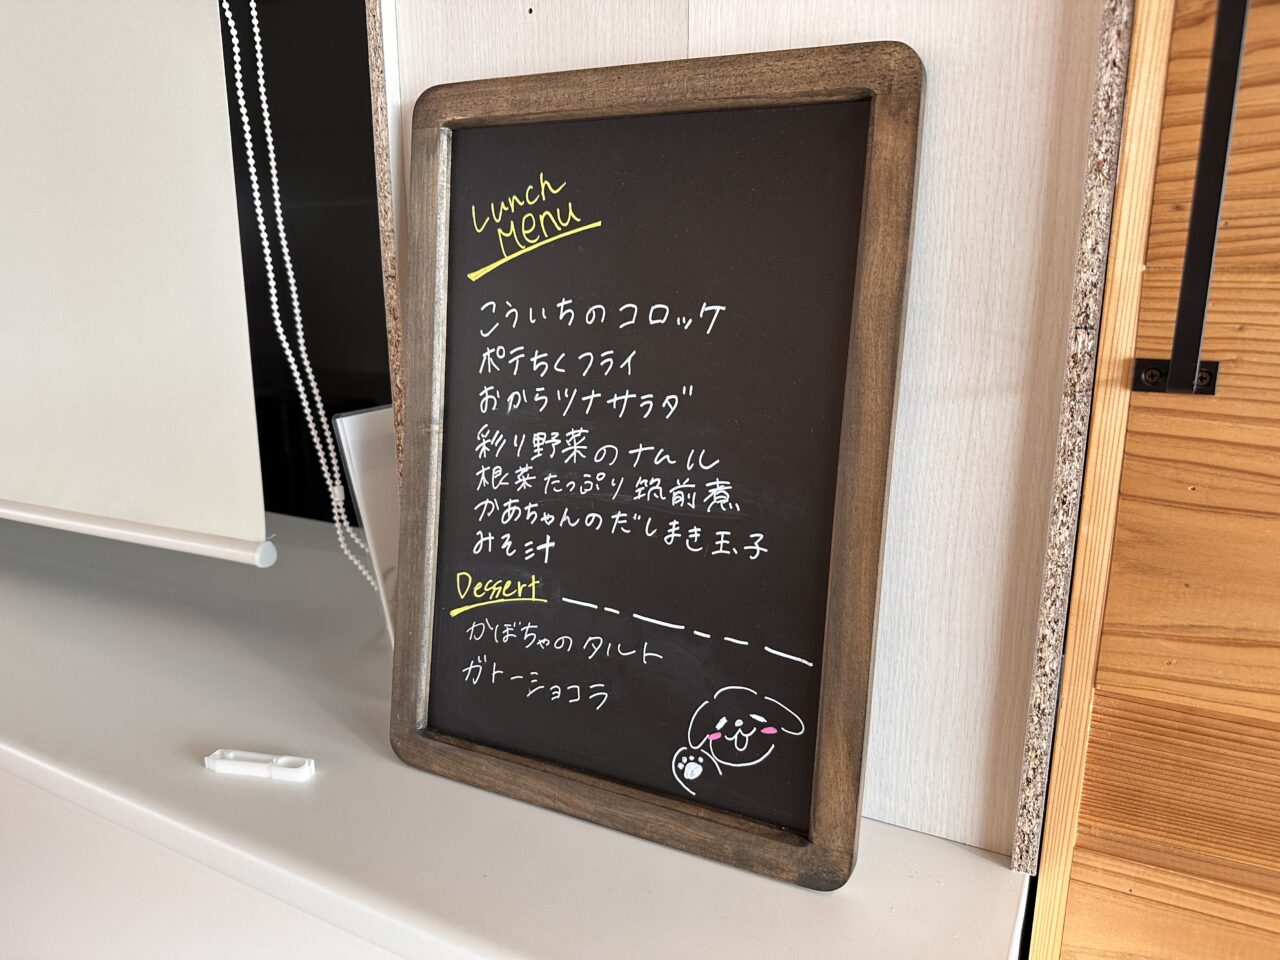 Lunch
Menu
こういちのコロッケ
ポテちくフライ
おからツナサラダ
彩り野菜のナムル
根菜たっぷり筑前煮
かあちゃんのだしまき玉子
みそ汁
Dessert
かぼちゃのタルト
ガトーショコラ